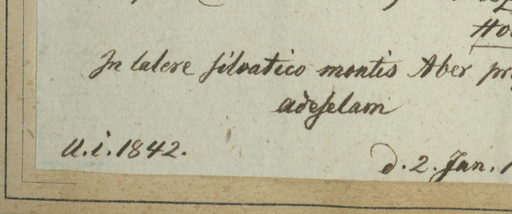 In latere silvatico montis Aber pr
adeselam
U.i.1842.
d. 2. Jan. 1